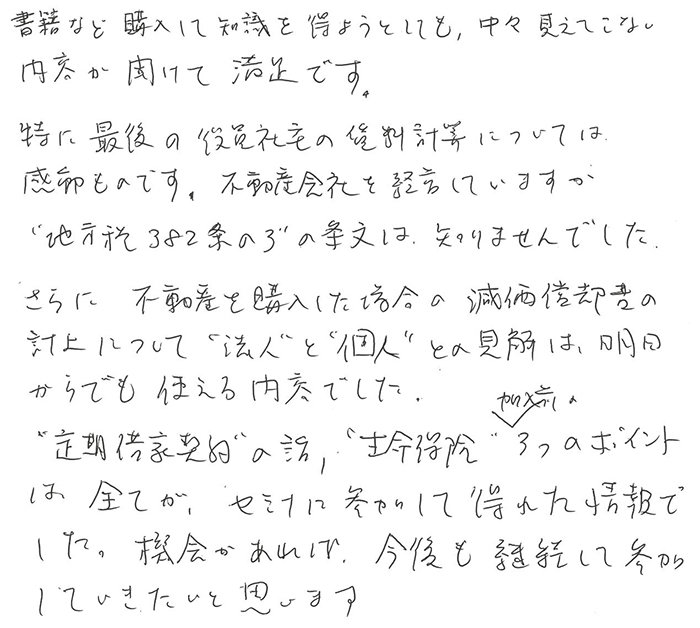 書籍など購入して知識を得ようとしても、中々見えてこない
内容が聞けて満足です。
特に最後の役員社宅の賃料計算については
感動ものです。不動産会社を経営していますが
"地方税382条の3"の条文は、知りませんでした。
さらに 不動産を購入した場合の減価償却費の
計上について"法人"と"個人"との見解は、明日
からでも使える内容でした。
加入前の
"定期借家契約"の話、"生命保険" 3つのポイント
は、全てが、セミナーに参加して得れた情報で
した。機会があれば、今後も継続して参加
していきたいと思います